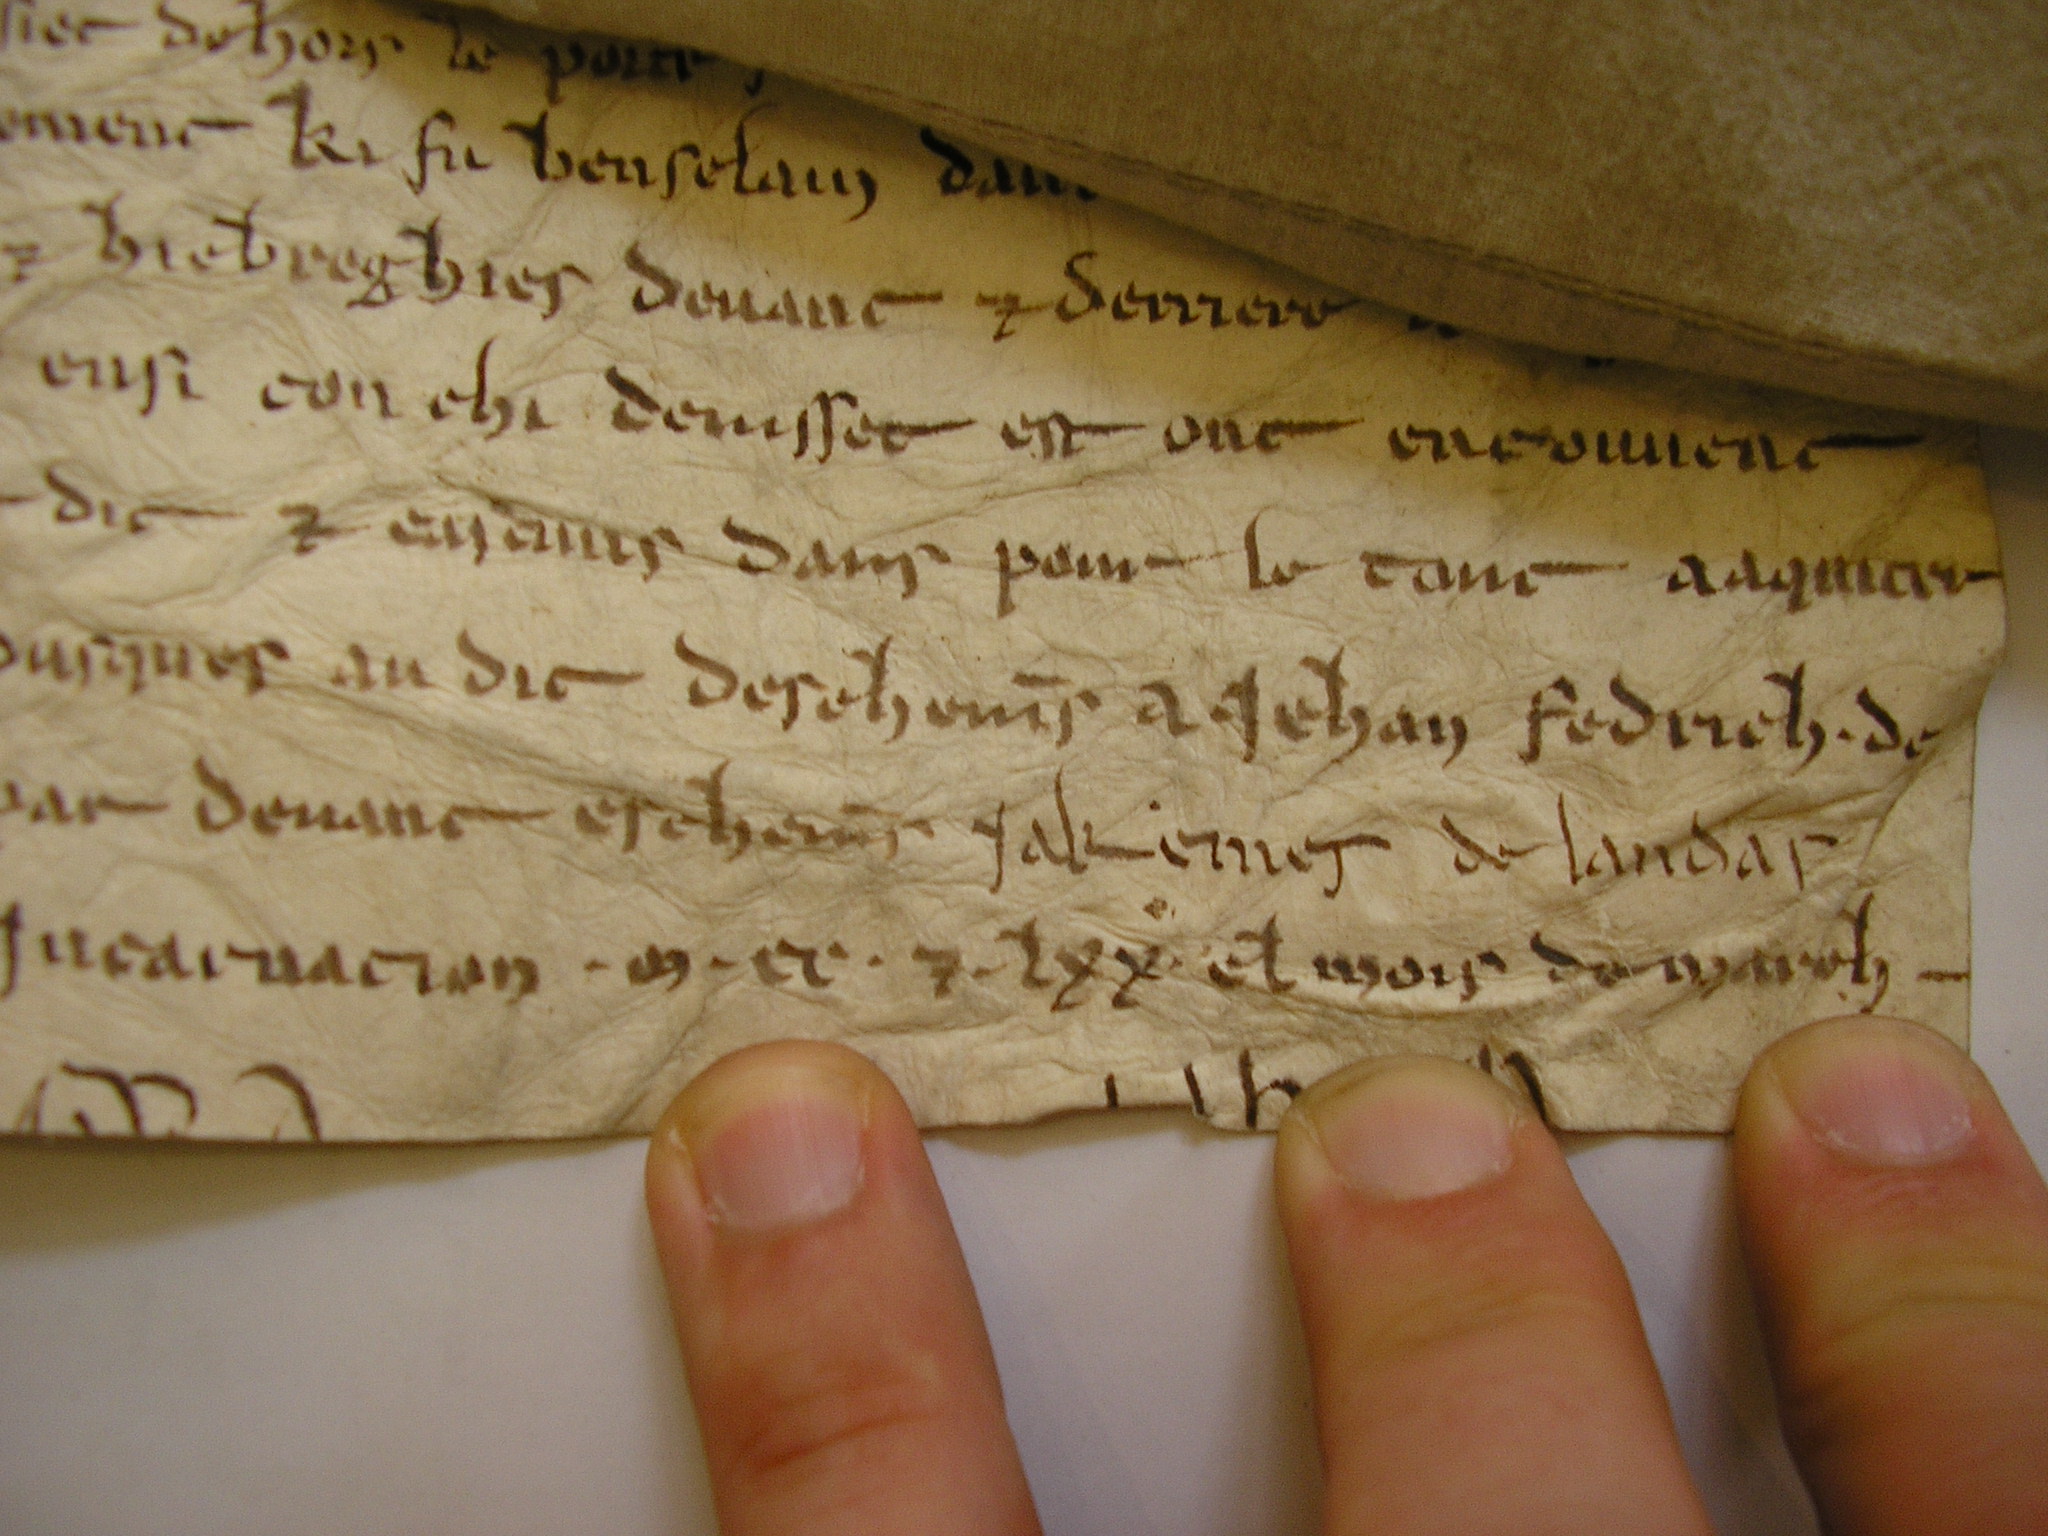 siet dehors le porte
ement ki fu henselain dant
⁊ hiebreghies deuant ⁊ derriere
ensi con chi deuisset est ont enconuent
dit ⁊ enfanns dans pour le tant aaquiter
dusques au dit descheuins a Jehan fedrich · de
deuant escheuins Jakemes de landas
Incarnacion · m · cc · ⁊ · lxx · el mois de march –